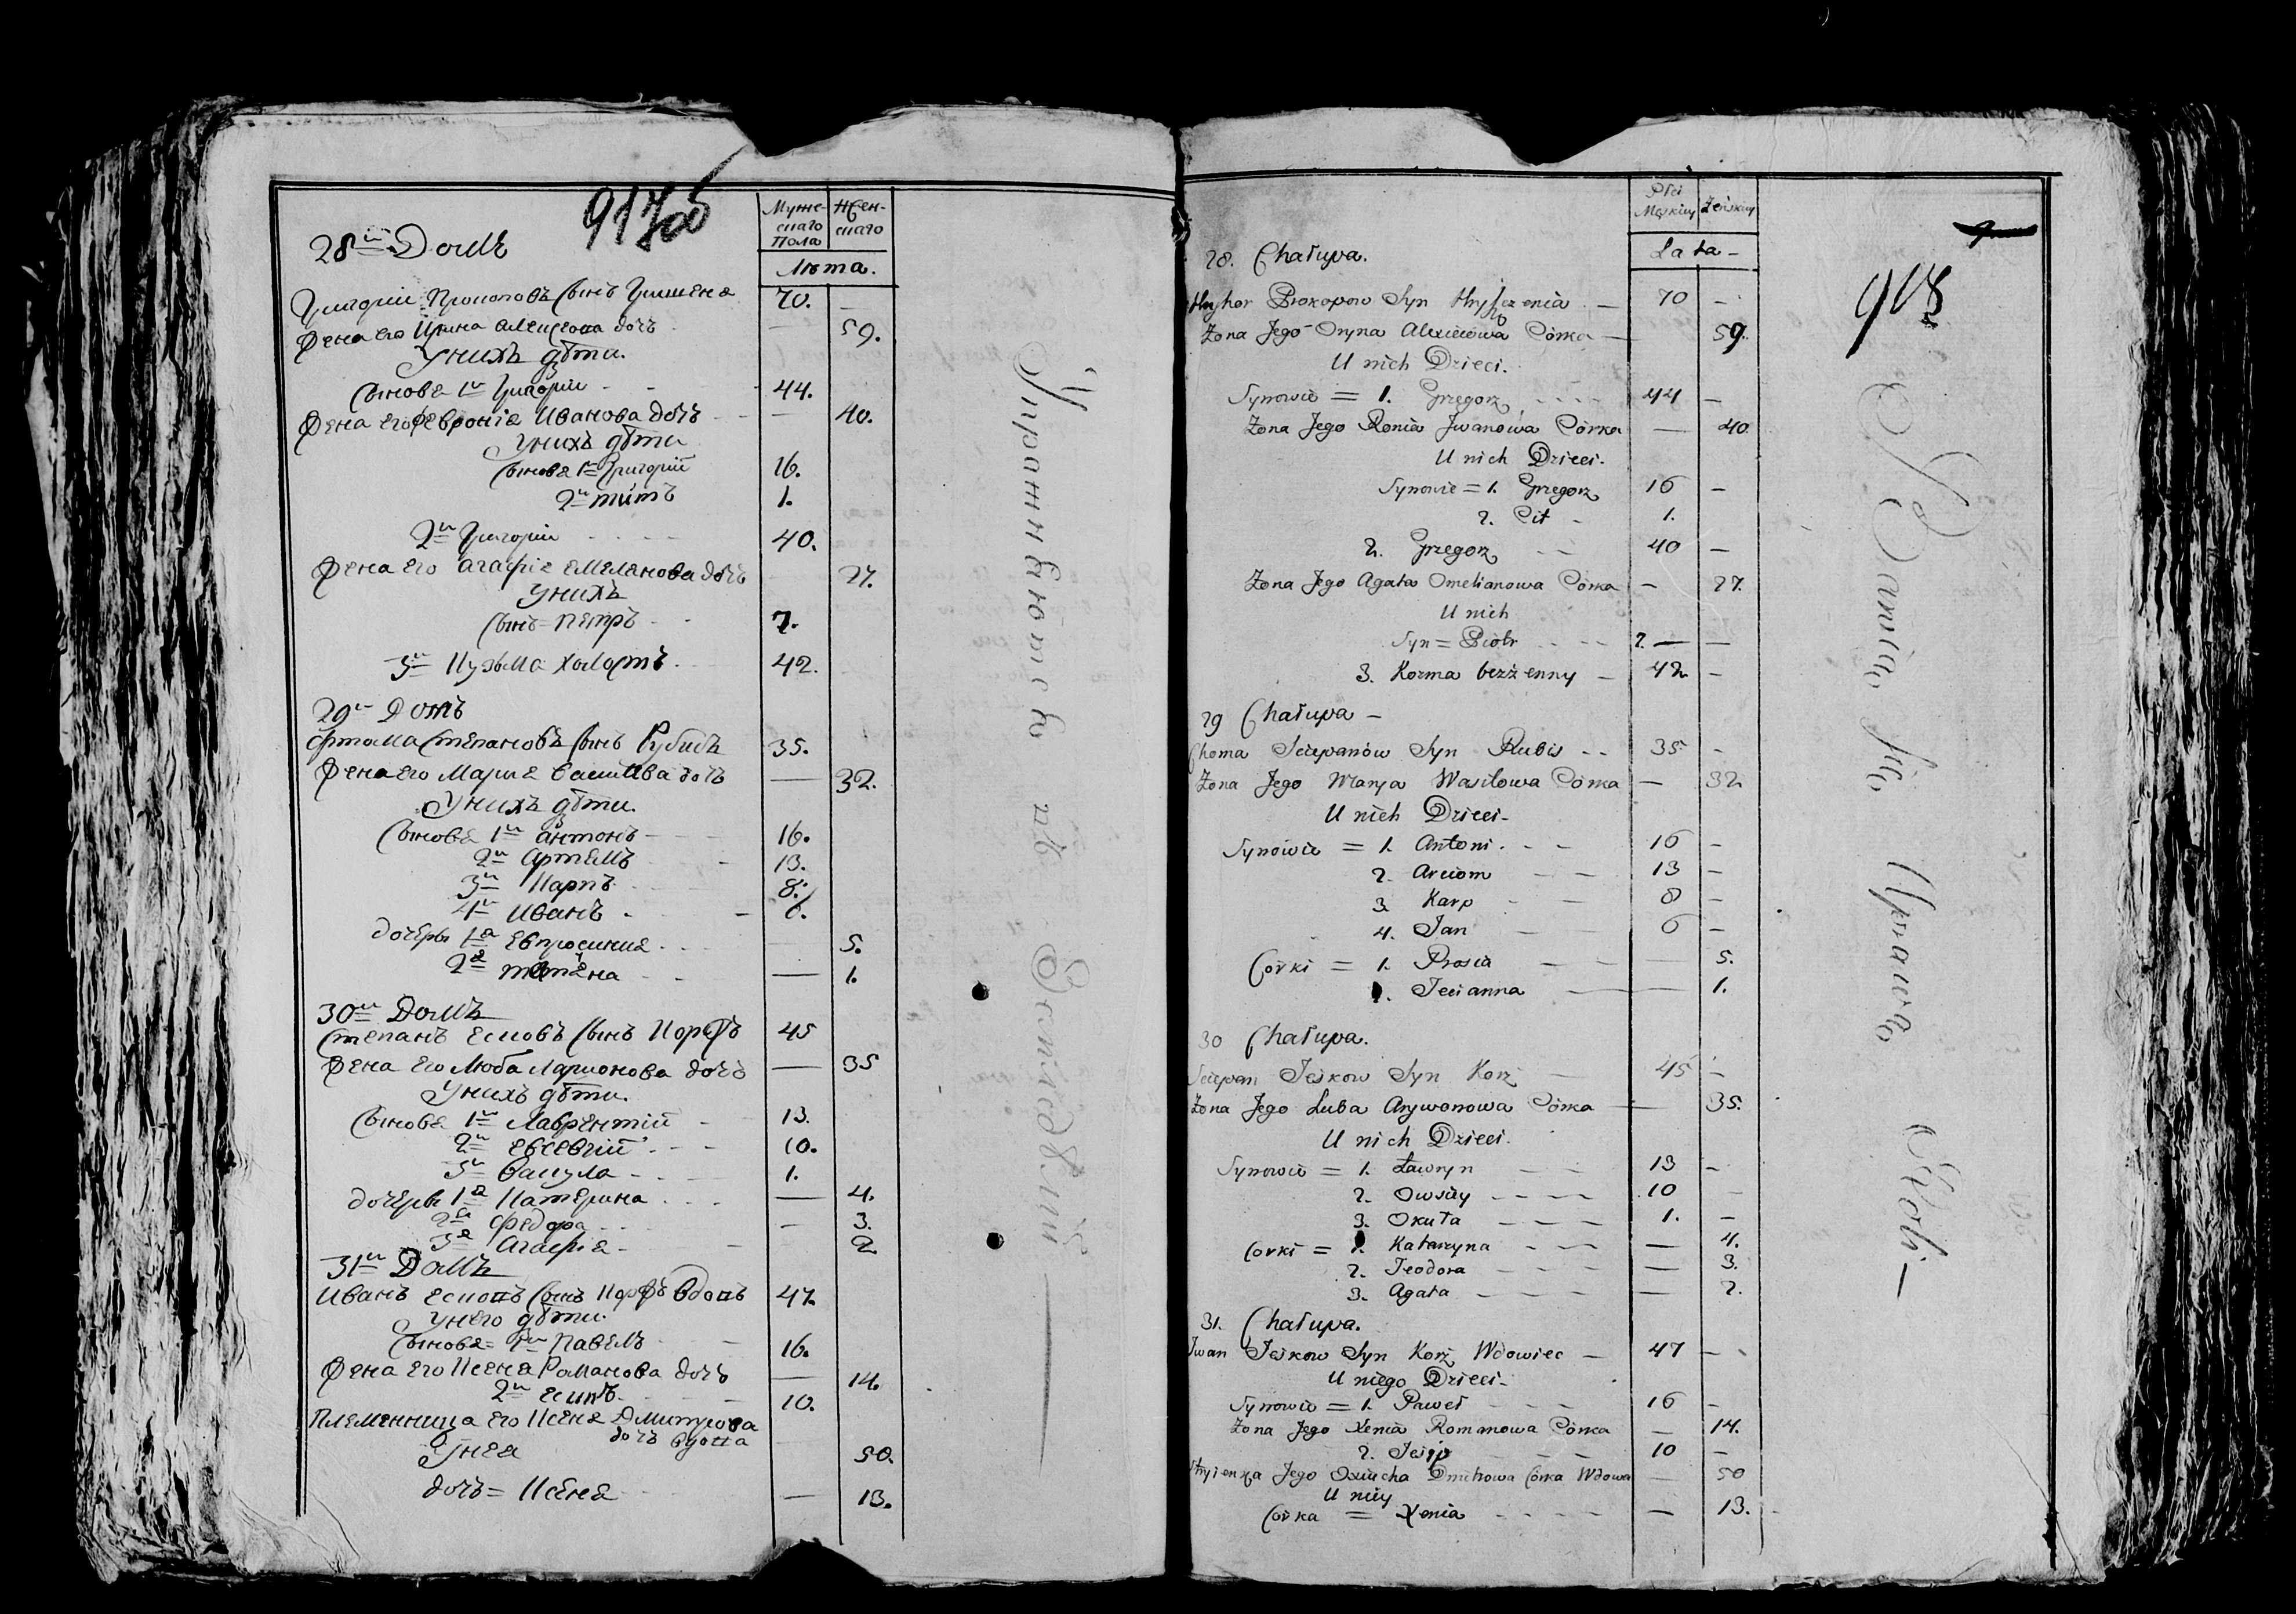 28й Домъ
Мужескаго Пола
Женскаго
Лѣта.
Григорій Прокоповъ Сынъ Грищеня 70. —
Жена его Ирина Алексеова дочъ — 59.
У нихъ дѣти.
Сыновя 1й Григорій 44.
Жена его Февронія Иванова дочъ — 40.
У нихъ дѣти
Сыновя 1й Григорій 16.
2й Титъ 1.
2й Григорій 40.
Жена его Агафія Емелянова дочъ 27.
У нихъ
Сынъ = Петръ 7.
3й Кузьма холостъ. 42.
29й Домъ
Фтома Степановъ Сынъ Рубисъ 35.
Жена его Марія Василова дочъ — 32.
У нихъ дѣти.
Сыновя 1й Антонъ 16.
2й Артемъ 13.
3й Карпъ 8.
4й Иванъ 6.
дочеры 1я Евпросиния 5.
2я Татяна — 1.
30й Домъ
Степанъ Есковъ Сынъ Коржъ 45
Жена его Люба Ларионова дочъ — 35
У нихъ дѣти.
Сыновя 1й Лаврентій 13.
2й Евсевгій 10.
3й Вакула 1.
дочеры 1я Катерина — 4.
2я Федора — 3.
3я Агафія 2
31й Домъ
Иванъ Есковъ Сынъ Коржъ Вдовъ 47.
У него дѣти.
Сыновя = 1й Павелъ 16.
Жена его Ксеня Романова дочъ — 14.
2й Есипъ 10.
Племенница его Ксеня Дмитрова
дочъ вдова
У нея 50.
дочъ = Ксеня — 13.
Упражняются въ Земледѣліи
Płci Męskiey
Żeńskiey
Lata –
28. Chałupa.
Hryhor Prokopow Syn Hryszczenia — 70 –
Żona Jego Oryna Alexieiowa Córka — 59.
U nich Dzieci.
Synowie = 1. Grzegorz 44 –
Żona Jego Ronia Jwanowa Córka — 40
U nich Dzieci.
Synowie = 1. Grzegorz 16 –
2. Cit 1.
2. Grzegorz 40 –
Żona Jego Agata Omelianowa Córka – 27.
U nich
Syn = Piotr 7. — —
3. Kozma bezżenny – 42 –
29 Chałupa –
Choma Sciepanów Syn Rubis 35 –
Żona Jego Marya Wasilowa Córka — 32
U nich Dzieci –
Synowie = 1. Antoni 16 –
2. Arciom 13 –
3. Karp 8 –
4. Jan 6 –
Córki = 1. Prosia — 5.
2. Tecianna — 1.
30 Chałupa.
Sciepan Jeskow Syn Korż — 45 –
Żona Jego Luba Arywonowa Córka — 35.
U nich Dzieci.
Synowie = 1. Ławryn 13 –
2. Owsiey 10 –
3. Okuła 1. –
Córki = 1. Katarzyna — 4.
2. Teodora — 3.
3. Agata — 2.
31. Chałupa.
Jwan Jeskow Syn Korż Wdowiec — 47 –
U niego Dzieci –
Synowie = 1. Paweł 16 –
Żona Jego Xenia Romanowa Córka — 14.
2. Jesip 10 –
Stryienka Jego Oxiucha Dmitrowa Córka Wdowa — 50
U niey
Córka = Xenia — 13.
918
Bawią się Uprawą Roli —